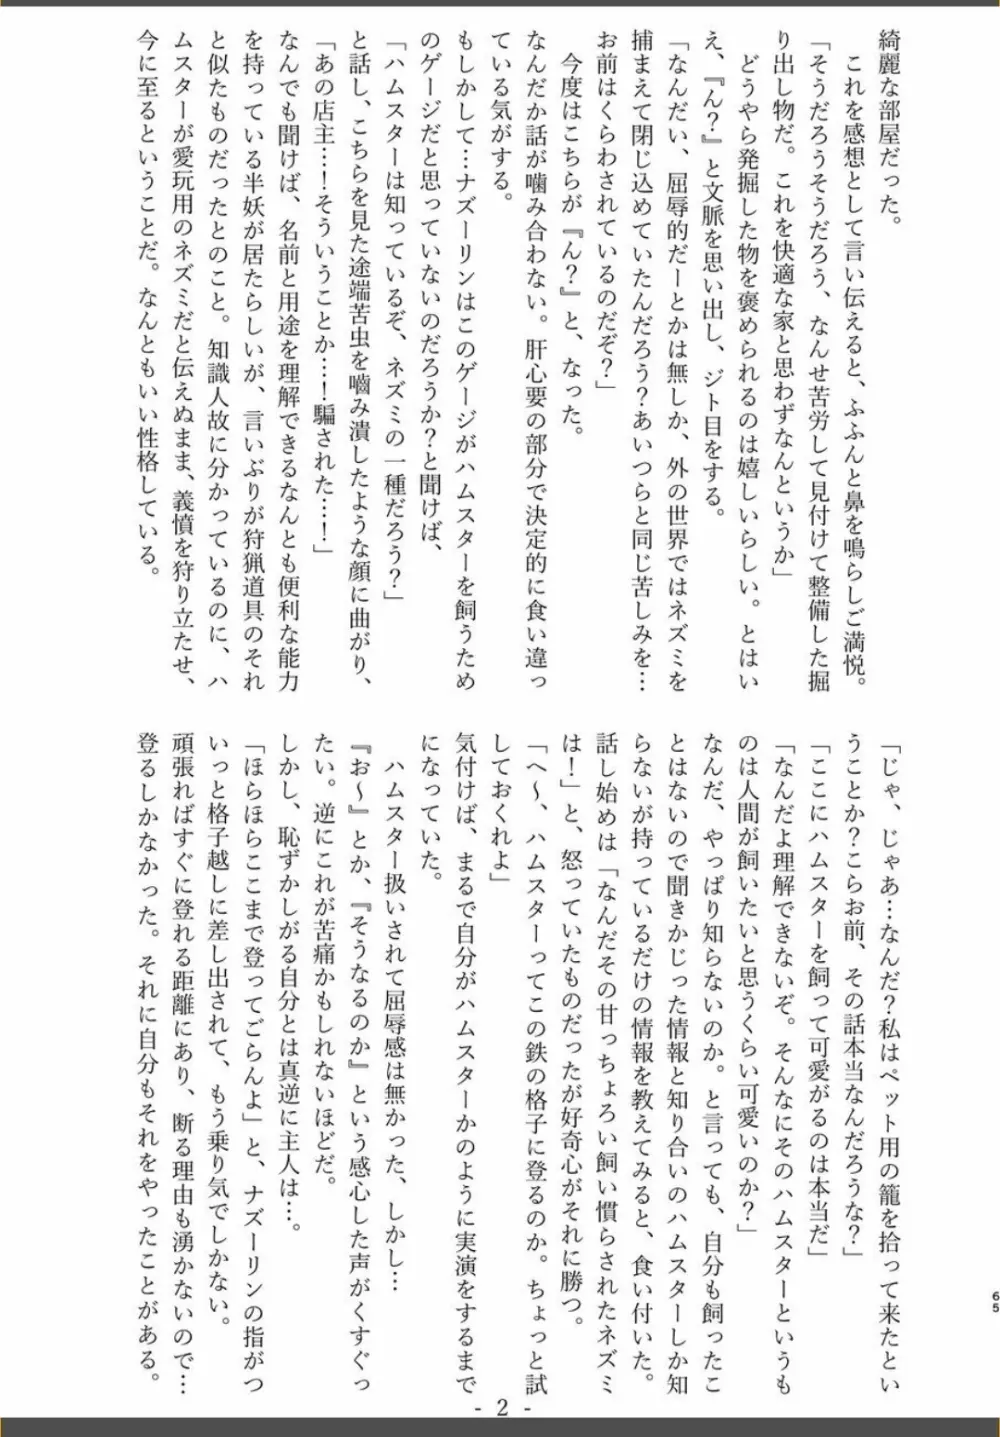 綺麗な部屋だった。
　これを感想として言い伝えると、ふふんと鼻を鳴らしご満悦。
「そうだろうそうだろう、なんせ苦労して見付けて整備した掘
り出し物だ。これを快適な家と思わずなんというか」
　どうやら発掘した物を褒められるのは嬉しいらしい。とはい
え、『ん？』と文脈を思い出し、ジト目をする。
「なんだい、屈辱的だーとかは無しか、外の世界ではネズミを
捕まえて閉じ込めていたんだろう？あいつらと同じ苦しみを…
お前はくらわされているのだぞ？」
　今度はこちらが『ん？』と、なった。
なんだか話が噛み合わない。肝心要の部分で決定的に食い違っ
ている気がする。
もしかして…ナズーリンはこのゲージがハムスターを飼うため
のゲージだと思っていないのだろうか？と聞けば、
「ハムスターは知っているぞ、ネズミの一種だろう？」
と話し、こちらを見た途端苦虫を噛み潰したような顔に曲がり、
「あの店主…！そういうことか…！騙された…！」
なんでも聞けば、名前と用途を理解できるなんとも便利な能力
を持っている半妖が居たらしいが、言いぶりが狩猟道具のそれ
と似たものだったとのこと。知識人故に分かっているのに、ハ
ムスターが愛玩用のネズミだと伝えぬまま、義憤を狩り立たせ、
今に至るということだ。なんともいい性格している。
「じゃ、じゃあ…なんだ？私はペット用の籠を拾って来たとい
うことか？こらお前、その話本当なんだろうな？」
「ここにハムスターを飼って可愛がるのは本当だ」
「なんだよ理解できないぞ。そんなにそのハムスターというも
のは人間が飼いたいと思うくらい可愛いのか？」
なんだ、やっぱり知らないのか。と言っても、自分も飼ったこ
とはないので聞きかじった情報と知り合いのハムスターしか知
らないが持っているだけの情報を教えてみると、食い付いた。
話し始めは「なんだその甘っちょろい飼い慣らされたネズミ
は！」と、怒っていたものだったが好奇心がそれに勝つ。
「へ～、ハムスターってこの鉄の格子に登るのか。ちょっと試
しておくれよ」
気付けば、まるで自分がハムスターかのように実演をするまで
になっていた。
　ハムスター扱いされて屈辱感は無かった、しかし…
『お～』とか、『そうなるのか』という感心した声がくすぐっ
たい。逆にこれが苦痛かもしれないほどだ。
しかし、恥ずかしがる自分とは真逆に主人は…。
「ほらほらここまで登ってごらんよ」と、ナズーリンの指がつ
いっと格子越しに差し出されて、もう乗り気でしかない。
頑張ればすぐに登れる距離にあり、断る理由も湧かないので…
登るしかなかった。それに自分もそれをやったことがある。
65
- 2 -